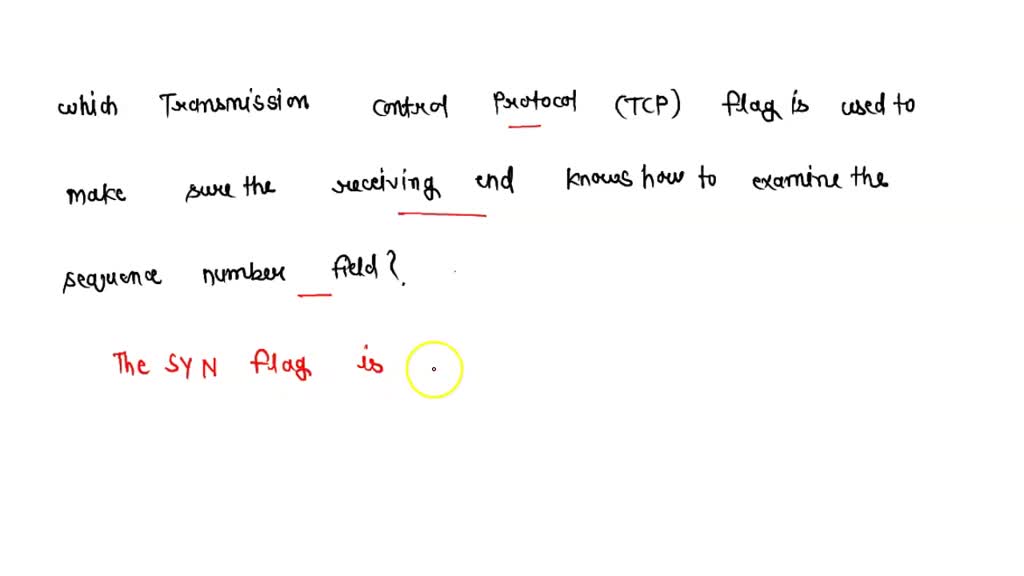 which Transmission control Protocol (TCP) flag is used to
make sure the receiving end knows how to examine the
sequence number field?
The SYN flag is